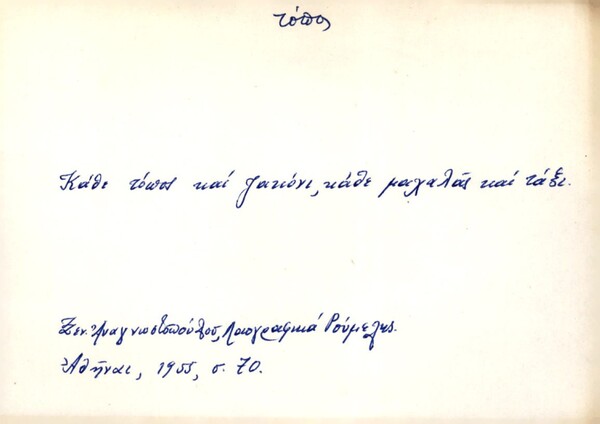 τόπος
Κάθε τόπος καί ζακόνι, κάθε μαχαλᾶς καί τάξι.
Ξεν. Ἀναγνωστοπούλου, Λαογραφικά Ρούμελης.
Ἀθῆναι, 1955, σ. 70.